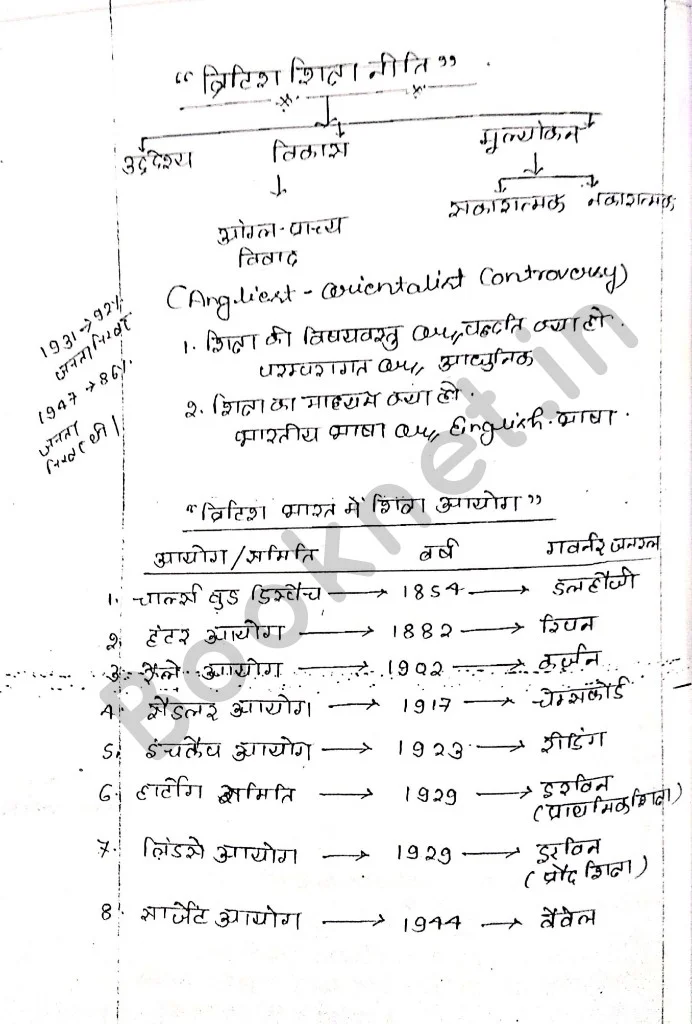 “ब्रिटिश शिक्षा नीति”
उद्देश्य विकास मूल्यांकन
सकारात्मक नकारात्मक
आंग्ल-प्राच्य
विवाद
(Angliest - Orientalist Controversy)
1931 → 92%
जनता निरक्षर
1947 → 86%
जनता
निरक्षर थी।
1. शिक्षा की विषयवस्तु एवं पद्धति क्या हो।
परम्परागत एवं आधुनिक
2. शिक्षा का माध्यम क्या हो।
भारतीय भाषा एवं English भाषा।
“ब्रिटिश भारत में शिक्षा आयोग”
आयोग/समिति वर्ष गवर्नर जनरल
1. चार्ल्स वुड डिस्पैच → 1854 → डलहौजी
2. हंटर आयोग → 1882 → रिपन
3. रैले आयोग → 1902 → कर्जन
4. सैडलर आयोग → 1917 → चेम्सफोर्ड
5. इंचकैप आयोग → 1923 → रीडिंग
6. हार्टोग समिति → 1929 → इरविन
(प्राथमिक शिक्षा)
7. लिंडसे आयोग → 1929 → इरविन
(प्रौढ शिक्षा)
8. सार्जेंट आयोग → 1944 → वेवेल
Booknet.in